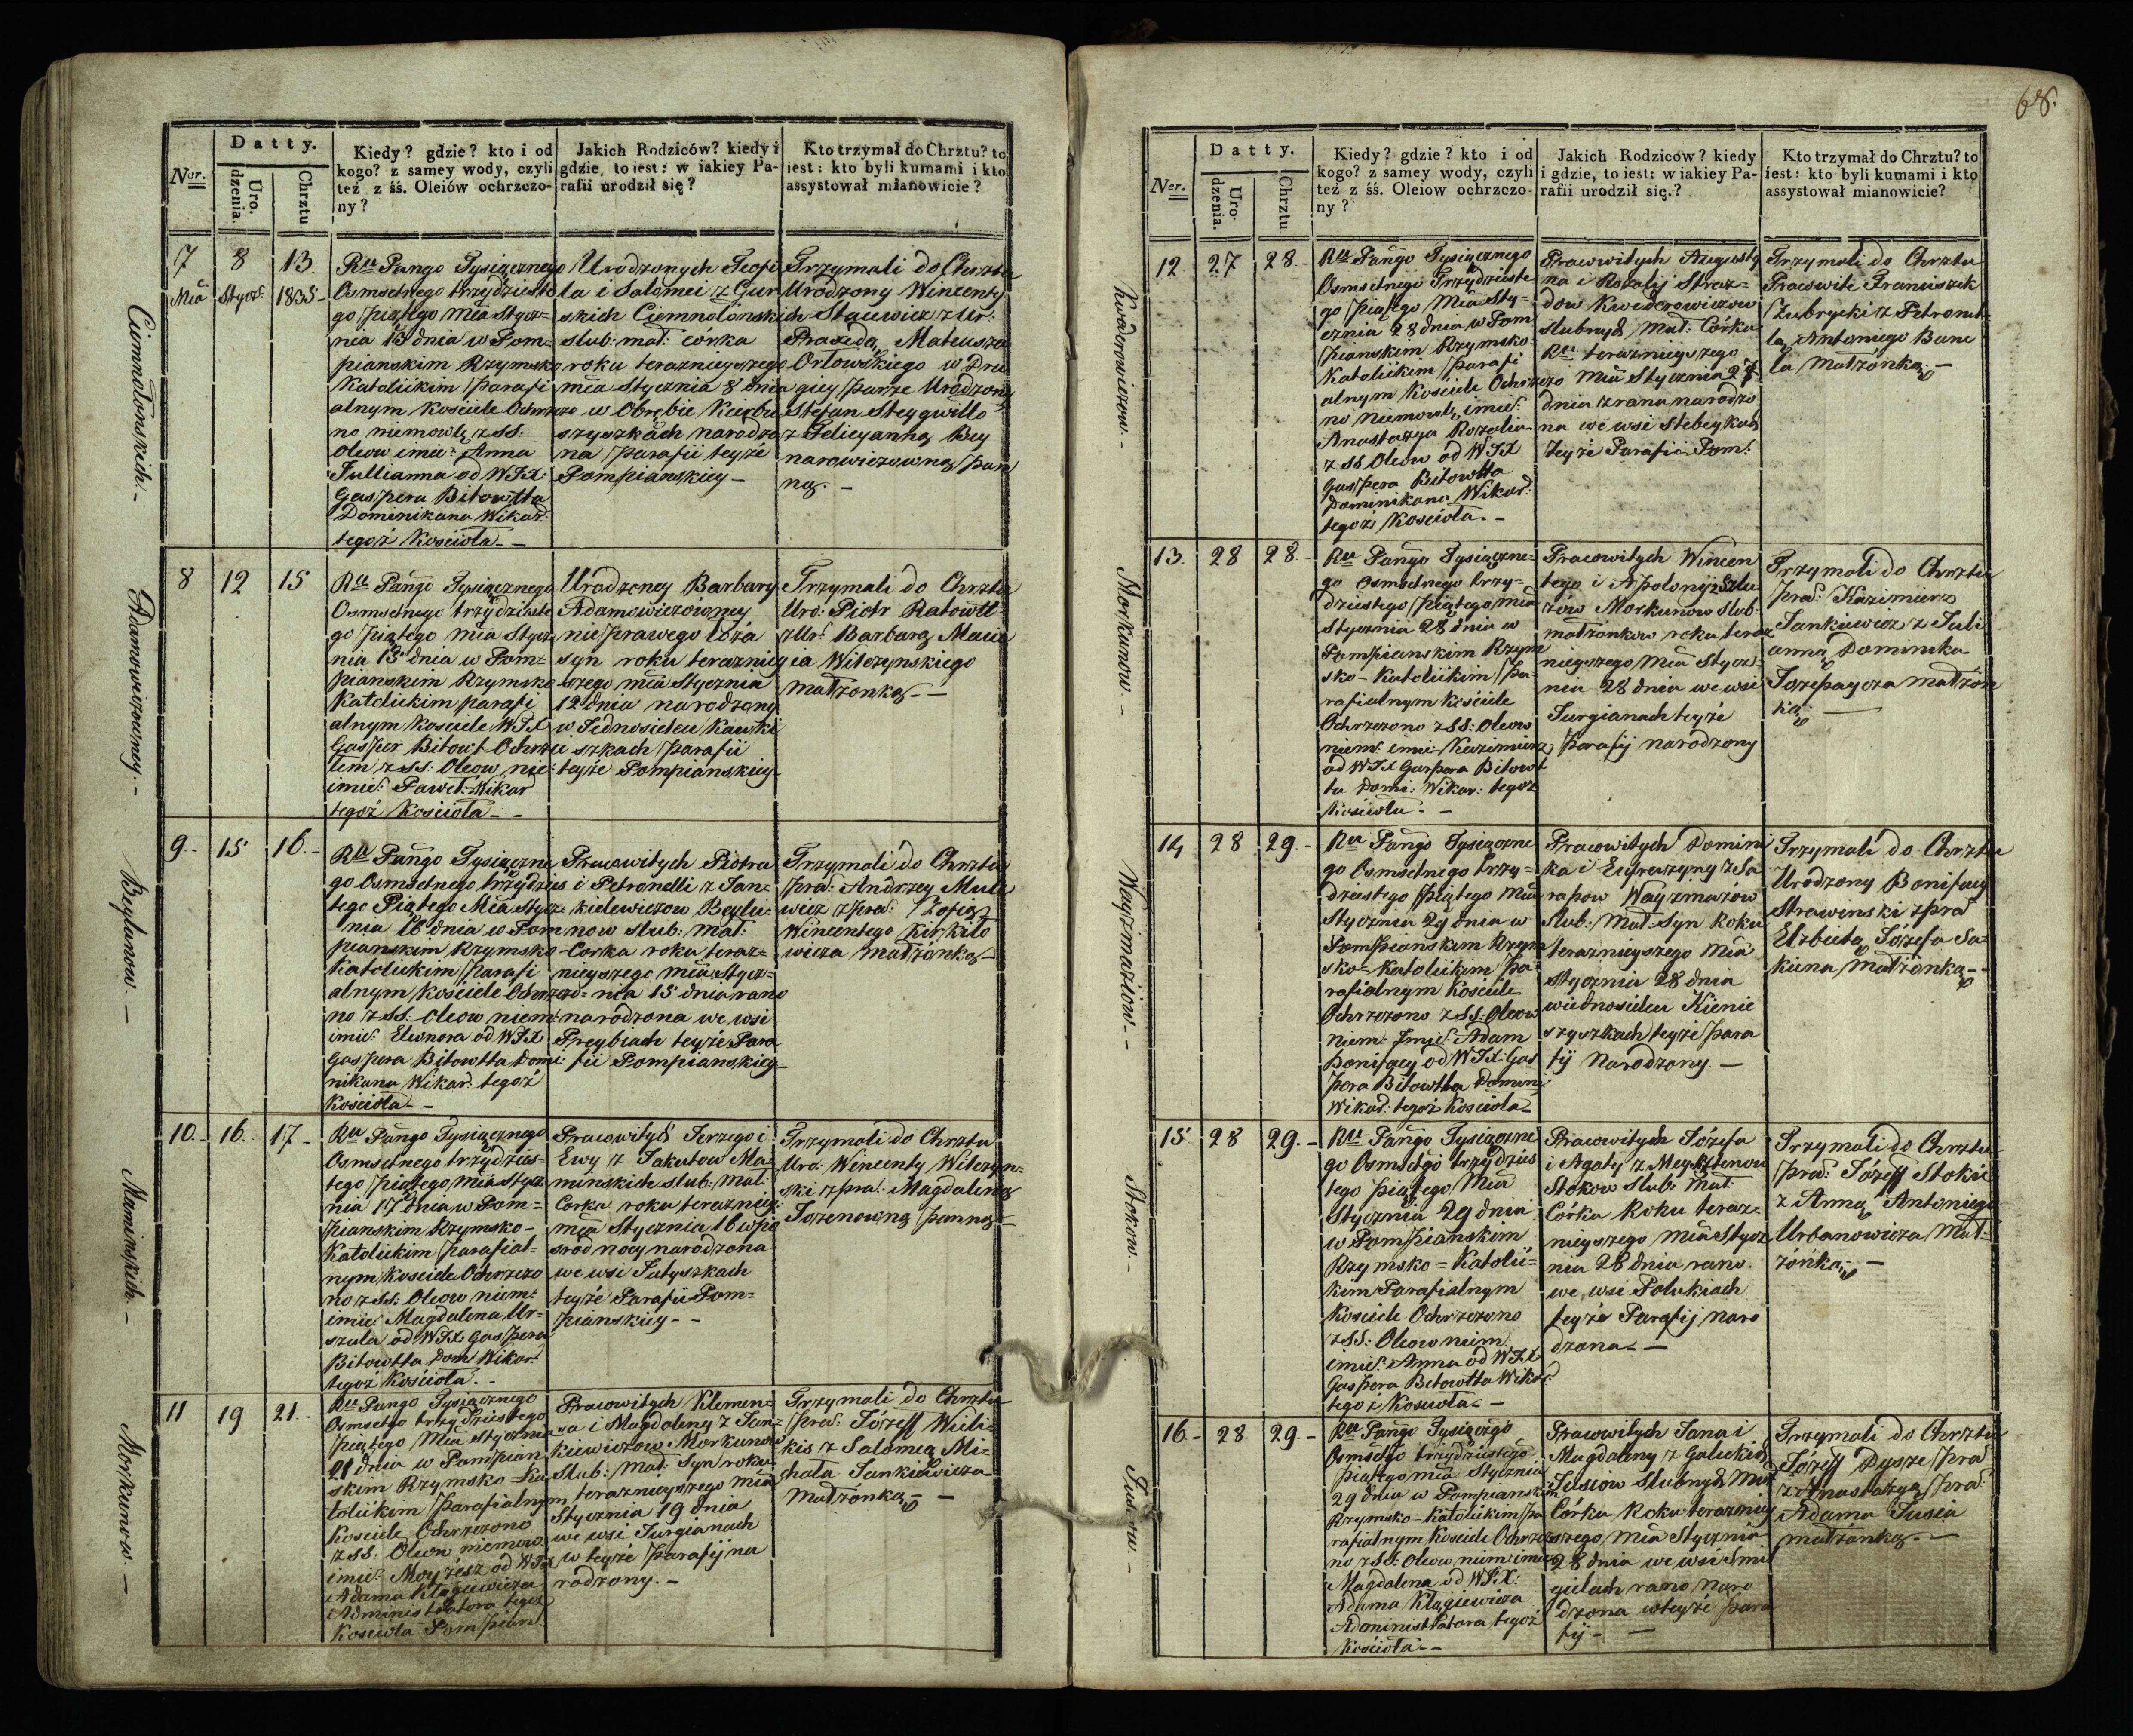 68.
Datty.
Ner.
Uro-
dzenia.
Chrztu
Kiedy? gdzie? kto i od
kogo? z samey wody, czyli
też z śś. Oleiów ochrzczo-
ny?
Jakich Rodziców? kiedy i
gdzie, to iest: w iakiey Pa-
rafii urodził się?
Kto trzymał do Chrztu? to
iest: kto byli kumami i kto
assystował mianowicie?
Ciemnolonskich.-
7
Mca
8
Stycz:
13.
1835-
Ru Pango Tysiącznego
Osmsetnego trzydzieste
go piątego mca Stycz=
nia 13 dnia w Pom=
pianskim Rzymsko
Katolickim parafi
alnym Kosciele Ochrzczo
no niemowlę z SS:
Oleow imie: Anna
Jullianna od WJX:
Gaspera Bitowtta
Dominikana Wikar:
tegoż Kościoła.-
Urodzonych Teofi
la i Salomei z Gur
skich Ciemnolonskich
slub: mał: córka
roku teraznieyszego
mca Stycznia 8 dnia
w Obrębie Kierbu
szyszkach narodzo
na parafii teyże
Pompianskiey-
Trzymali do Chrztu
Urodzony Wincenty
Stacewicz z Ur:
Praxedą Mateusza
Orłowskiego w Dru
giey parze Urodzony
Stefan Steygwiłło
z Felicyanną Bey
narowiczowną pan
ną.-
Adamowiczowney.-
8
12
15
Ru Pango Tysiącznego
Osmsetnego trzydzieste
go piątego mca Stycz
nia 15 dnia w Pom=
pianskim Rzymsko
Katolickim parafi
alnym Kosciele WJX
Gasper Bitowt Ochrzci
łem z SS: Oleow nie:
imie: Paweł: Wikar
tegoż Kościoła.-
Urodzoney Barbary
Adamowiczowney
nieprawego łoża
syn roku terazniey
szego mca Stycznia
12 dnia narodzony
w Jednosielcu Kawki
szkach parafii
teyże Pompianskiey-
Trzymali do Chrztu
Uro: Piotr Ratowtt
z Ur: Barbarą Macie
ia Wilczynskiego
małżonką.-
Beylunow.-
9.-
15
16.-
Ru Pango Tysiączne
go Osmsetnego trzydzies
tego Piątego Mca Stycz
nia 16 dnia w Pom
pianskim Rzymsko-
Katolickim parafi
alnym Kościele Ochrzczo=
no z SS: Oleow niem:
imie: Eleonora od WJX
Gaspera Bitowtta Domi:
nikana Wikar: tegoż
Kościoła.-
Pracowitych Piotra
i Petronelli z Jan=
kielewiczow Beylu=
now slub: mał:
Corka roku teraz=
nieyszego mca Stycz=
nia 15 dnia rano
narodzona we wsi
Preybiach teyże Para
fii Pompianskiey-
Trzymali do Chrztu
pra: Andrzey Mule
wicz z pra: Zofią
Wincentego Kirkiło
wicza małżonką-
Maminskich.-
10.-
16.
17-
Ru Pango Tysiącznego
Osmsetnego trzydzies=
tego piątego mca Stycz
nia 17 dnia w Pom=
pianskim Rzymsko-
Katolickim parafial=
nym Kosciele Ochrzczo
no z SS: Oleow niem:
imie: Magdalena Ur=
szula od WJX Gaspera
Bitowtta Dom: Wikar:
tegoż Kościoła.-
Pracowitych Jerzego i
Ewy z Jakutow Ma=
minskich slub: mał:
Corka roku terazniey:
mca Stycznia 16 w po
srod nocy narodzona
we wsi Jutyszkach
teyże Parafii Pom=
pianskiey.-
Trzymali do Chrztu
Uro: Wincenty Wilczyn=
ski z pra: Magdaleną
Jozenowną panną-
Morkunow.-
11
19
21.-
Ru Pango Tysiącznego
Osmsetgo trzydziestego
piątego Mca Stycznia
21 dnia w Pompian
skim Rzymsko=Ka
tolickim parafialnym
Kosciele Ochrzczono
z SS: Oleow niemow:
imie: Moyżesz od WJX
Adama Kłągiewicza
Administratora tegoż
Koscioła Pompian:
Pracowitych Klemen=
sa i Magdaleny z Jan=
kiewiczow Morkunow
Slub: Mał: Syn roku
teraznieyszego Mca
Stycznia 19 dnia
we wsi Jurgianach
w teyże parafij na
rodzony.-
Trzymali do Chrztu
pra: Jozeff Wili=
kis z Salomeą Mi=
chała Jankiewicza
małżonką-
Datty.
Ner.
Uro-
dzenia.
Chrztu
Kiedy? gdzie? kto i od
kogo? z samey wody, czyli
też z śś. Oleiow ochrzczo-
ny?
Jakich Rodzicow? kiedy
i gdzie, to iest: w iakiey Pa-
rafii urodził się.?
Kto trzymał do Chrztu? to
iest: kto byli kumami i kto
assystował mianowicie?
Kwederowiczow.-
12
27
28.-
Ru Pango Tysiącznego
Osmsetnego Trzydzieste
go piątego Mca Sty=
cznia 28 dnia w Pom
pianskim Rzymsko
Katolickim parafi
alnym Kosciele Ochrzczo
no Niemowlę imie:
Anastazya Rozalia
z SS Oleow od WJX
Gaspera Bitowtta
Dominikana Wikar:
tegoż Kościoła.-
Pracowitych Augusty
na i Rozalij Straz=
dow Kwederowiczow
slubnych Mał: Córka
Ru: teraznieyszego
Mca Stycznia 27
dnia zrana narodzo
na we wsi Stebeykach
teyże Parafii Pom:
Trzymali do Chrztu
Pracowite Franciszek
Zubrycki z Petronel
lą Antoniego Bane
la Małżonką.-
Morkunow.-
13.
28
28.-
Ru Pango Tysiączne=
go Osmsetnego trzy=
dziestego piątego mca
Stycznia 28 dnia w
Pompianskim Rzym
sko-Katolickim pa
rafialnym Kościele
Ochrzczono z SS: Oleow
niem: imie: Kazimierz
od WJX Gaspera Bitowt
ta Domi: Wikar: tegoż
Kościoła.-
Pracowitych Wincen
tego i Apolonij
Morkunow slub:
małżonkow roku teraz
nieyszego Mca Stycz=
nia 28 dnia we wsi
Jurgianach teyże
Parafij narodzony
Trzymali do Chrztu
pra: Kazimierz
Jankiewicz z Juli
anną Dominika
Jozepaycza małżon
ką.-
Wayzmuziow.-
14
28
29.-
Ru Pango Tysiączne
go Osmsetnego trzy=
dziestego piątego Mca
Stycznia 29 dnia w
Pompianskim Rzym
sko=Katolickim pa
rafialnym Kosciele
Ochrzczono z SS: Oleow
niem: Imie: Adam
Bonifacy od WJX: Gas
pera Bitowtta Domini
Wikar: tegoż Kościoła-
Pracowitych Domini
ka i Eufrazyny z Sa
rapow Wayzmuziow
Slub: Mał: Syn Roku
teraznieyszego Mca
Stycznia 28 dnia
wiednosielcu Kienie
szyszkach teyże para
fij Narodzony.-
Trzymali do Chrztu
Urodzony Bonifacy
Strawinski z pra
Elzbietą Józefa Sa=
kiena małżonką.-
Stokow.-
15
28
29.-
Ru Pango Tysiączne
go Osmsetgo trzydzies
tego piątego Mca
Stycznia 29 dnia
w Pompianskim
Rzymsko=Katolic=
kim Parafialnym
Kosciele Ochrzczono
z SS: Oleow niem:
imie: Anna od WJX
Gaspera Bitowtta Wikar:
tegoż Kościoła.-
Pracowitych Józefa
i Agaty z Meysztenow
Stokow Slub: Mał:
Córka Roku teraz=
nieyszego Mca Stycz
nia 28 dnia rano
we wsi Polukiach
teyże Parafij naro
dzona.-
Trzymali do Chrztu
pra: Józeff Stokie
z Anną Antoniego
Urbanowicza Mał=
żonką.-
Jusiow.-
16-
28
29.-
Ru Pango Tysiączgo
Osmsetgo trzydziestego
piątego mca Stycznia
29 dnia w Pompianskim
Rzymsko-Katolickim pa
rafialnym Kosciele Ochrzczo
no z SS: Oleow niem imie:
Magdalena od WJX:
Adama Kłągiewicza
Administratora tegoż
Kościoła.-
Pracowitych Jana i
Magdaleny z Galeckich
Jusiow Slubnych Mał
Córka Roku terazniey
szego Mca Stycznia
28 dnia we wsi Smil
gielach rano naro
dzona w teyże para
fij.-
Trzymali do Chrztu
Józeff Dysze pra
z Anastazyą pra:
Adama Jusia
małżonką.-